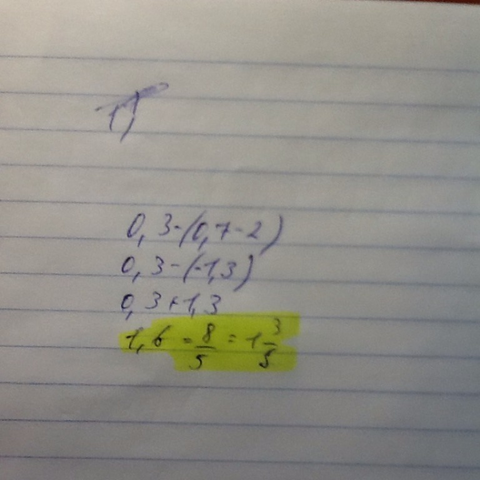 1)
0,3-(0,7-2)
0,3-(-1,3)
0,3+1,3
1,6 = 8/5 = 1 3/5